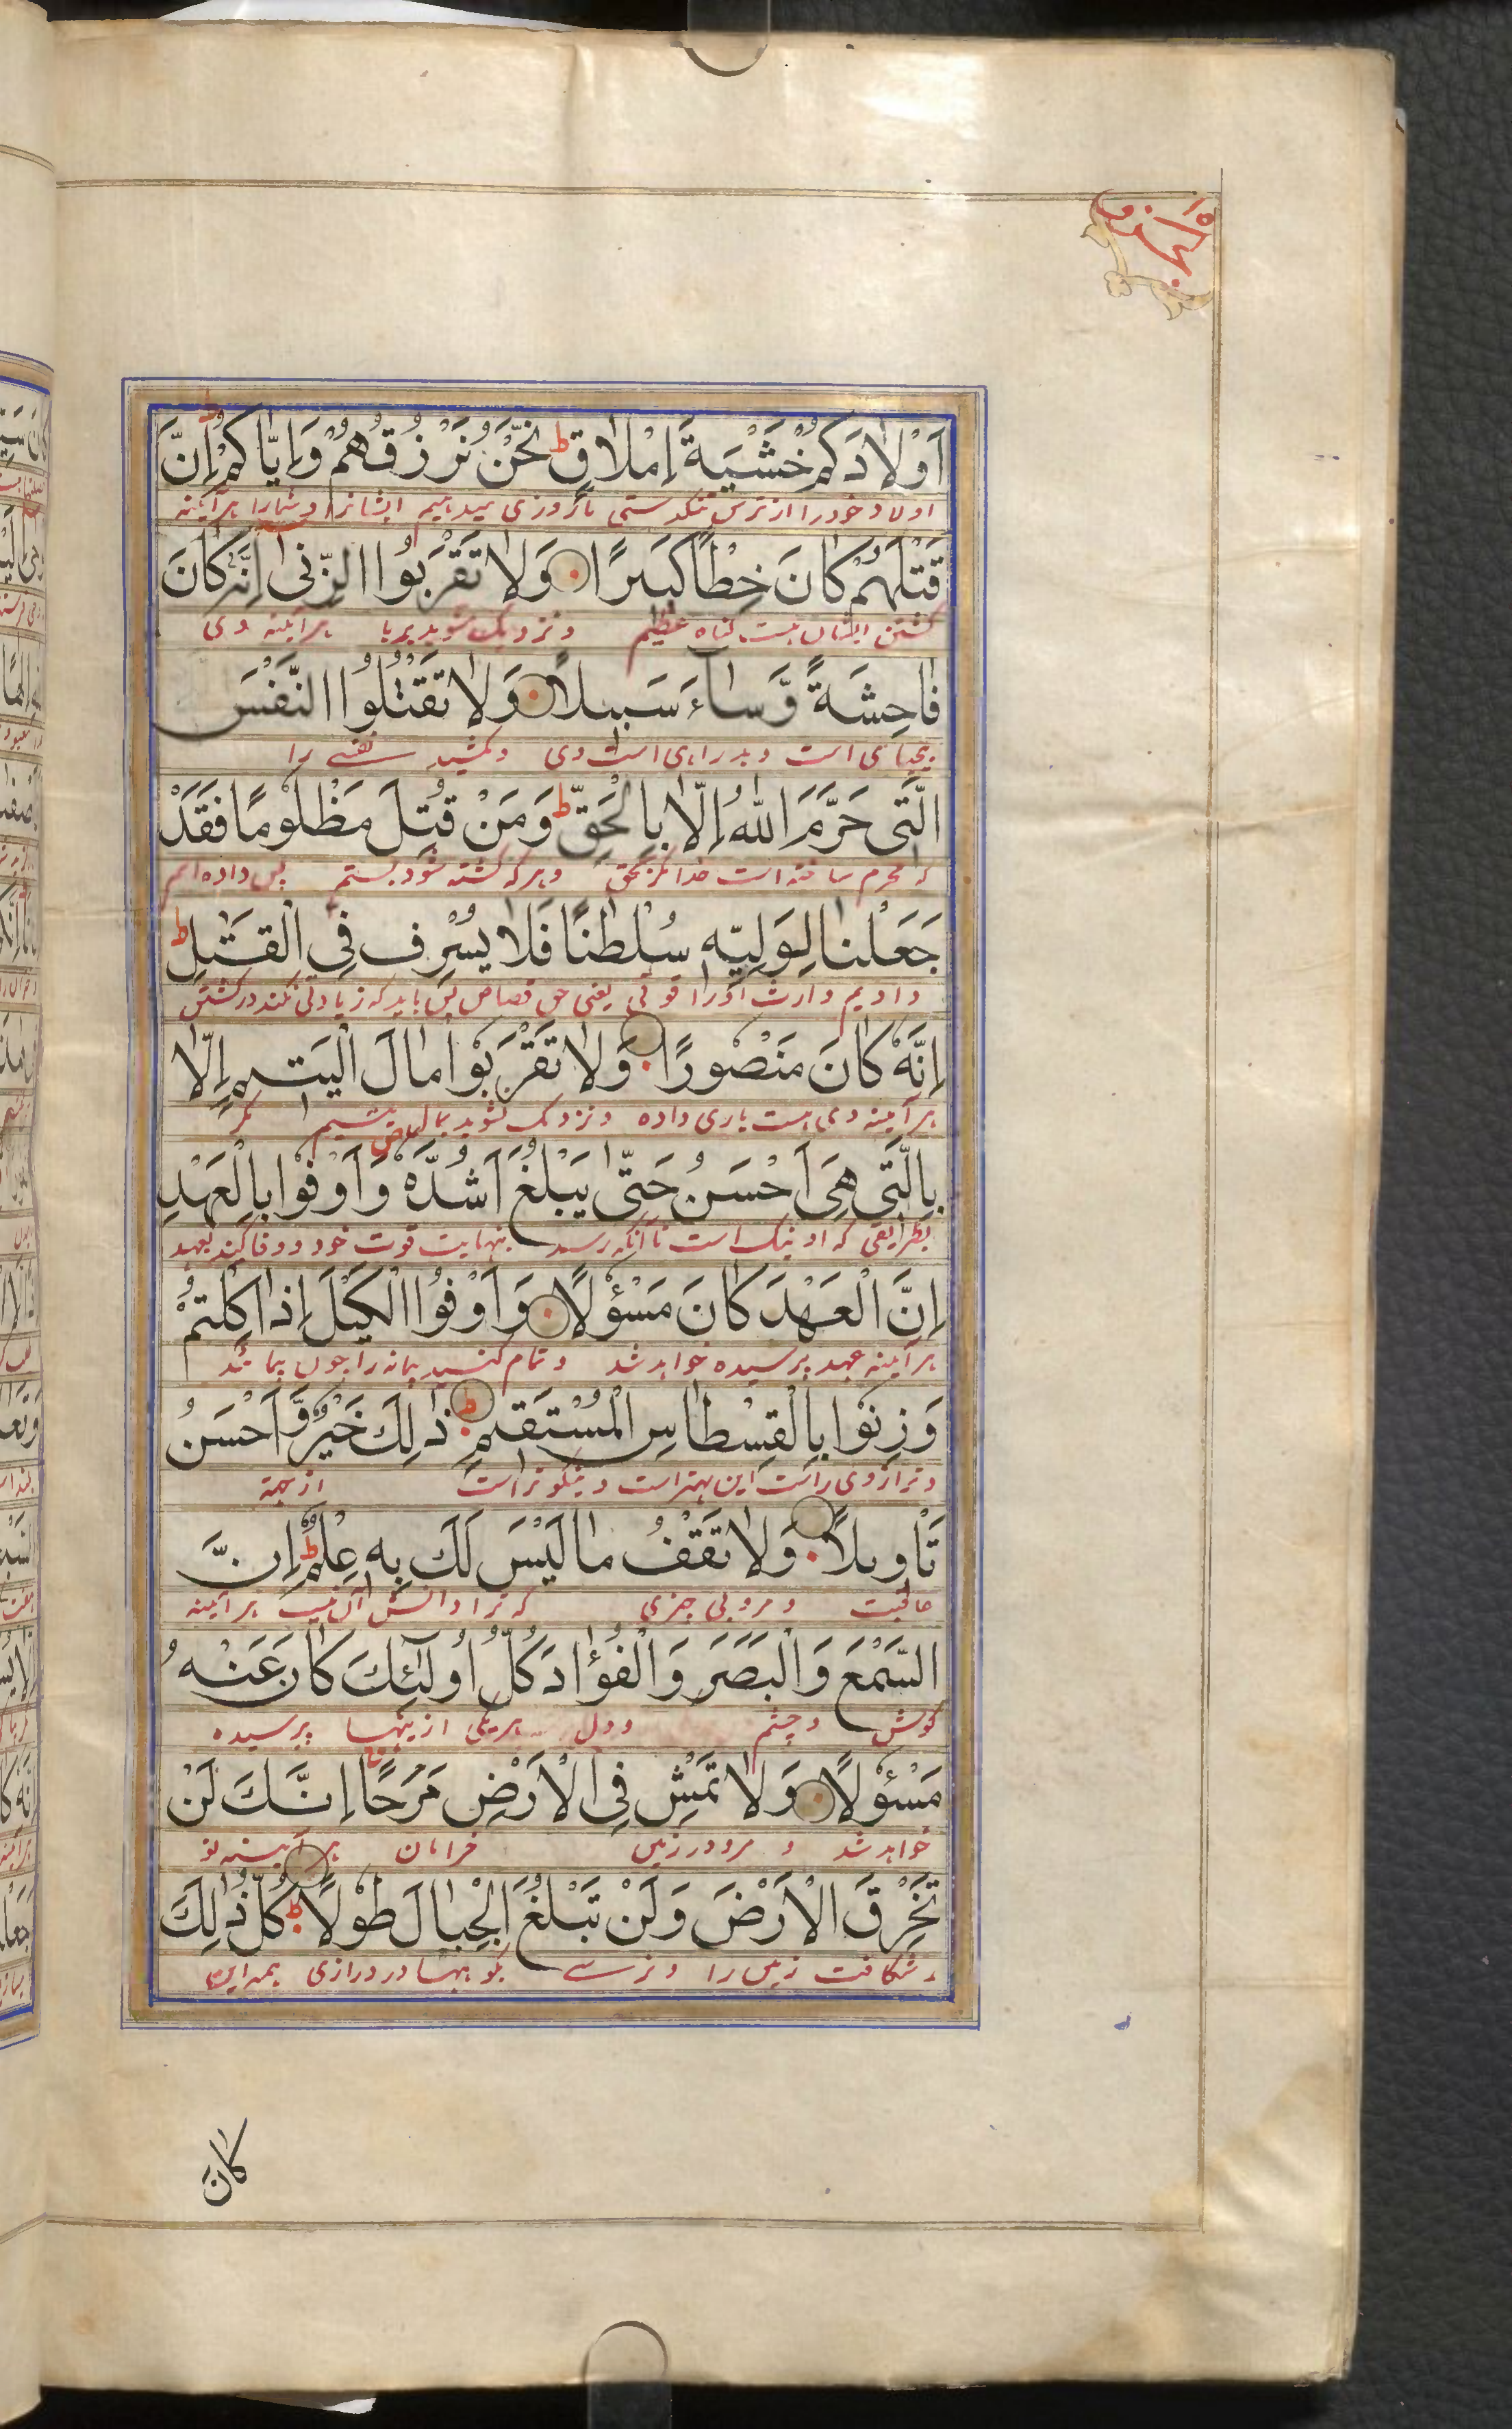 الجزو ١٥
اَوْلَادَكُمْ خَشْيَةَ اِمْلَاقٍ ط نَحْنُ نَرْزُقُهُمْ وَاِيَّاكُمْ ط اِنَّ
اولاد خود را از ترس تنگدستی ما روزی میدهیم ایشانرا و شمارا هرآئینه
قَتْلَهُمْ كَانَ خِطْاً كَبِيرًا وَلَا تَقْرَبُوا الزِّنٰى اِنَّهٗ كَانَ
کشتن ایشان هست گناه عظیم و نزدیک مشوید بزنا هرآئینه وی
فَاحِشَةً وَّسَآءَ سَبِيلًا وَلَا تَقْتُلُوا النَّفْسَ
بیحیائی است و بد راهی است وی و مکشید نفسے را
الَّتِى حَرَّمَ اللّٰهُ اِلَّا بِالْحَقِّ ط وَمَنْ قُتِلَ مَظْلُومًا فَقَدْ
که محرم ساخته است خدا مگر بحق و هر که کشته شود بستم پس داده ایم
جَعَلْنَا لِوَلِيِّهٖ سُلْطٰنًا فَلَا يُسْرِفْ فِى الْقَتْلِ ط
دادیم وارث اورا قوتی یعنی حق قصاص پس باید که زیادتی نکند در کشتن
اِنَّهٗ كَانَ مَنْصُورًا وَلَا تَقْرَبُوْا مَالَ الْيَتِيمِ اِلَّا
هرآئینه وی هست یاری داده و نزدیک مشوید بمال یتیم مگر
بِالَّتِى هِىَ اَحْسَنُ حَتّٰى يَبْلُغَ اَشُدَّهٗ وَاَوْفُوا بِالْعَهْدِ
بطریقی که او نیک است تا آنکه رسد بنهایت قوت خود و وفا کنید بعهد
اِنَّ الْعَهْدَ كَانَ مَسْؤُلًا وَاَوْفُوا الْكَيْلَ اِذَا كِلْتُمْ
هرآئینه عهد پرسیده خواهد شد و تمام کنید پیمانه را چون پیمائید
وَزِنُوا بِالْقِسْطَاسِ الْمُسْتَقِيمِ ط ذٰلِكَ خَيْرٌ وَّاَحْسَنُ
و ترازوی راست این بهتر است و نیکوتر است از جهة
تَاْوِيلًا وَلَا تَقْفُ مَا لَيْسَ لَكَ بِهٖ عِلْمٌ ط اِنَّ
عاقبت و مرو پی چیزی که ترا دانش آن نیست هرآئینه
السَّمْعَ وَالْبَصَرَ وَالْفُؤَادَ كُلُّ اُولٰٓئِكَ كَانَ عَنْهُ
گوش و چشم و دل هر یکی از ینها پرسیده
مَسْئُولًا وَلَا تَمْشِ فِى الْاَرْضِ مَرَحًا اِنَّكَ لَنْ
خواهد شد و مرو در زمین خرامان هرآئینه تو
تَخْرِقَ الْاَرْضَ وَلَنْ تَبْلُغَ الْجِبَالَ طُولًا كُلُّ ذٰلِكَ
شکافت زمین را و نرسے بکوهها در درازی همه این
كَانَ